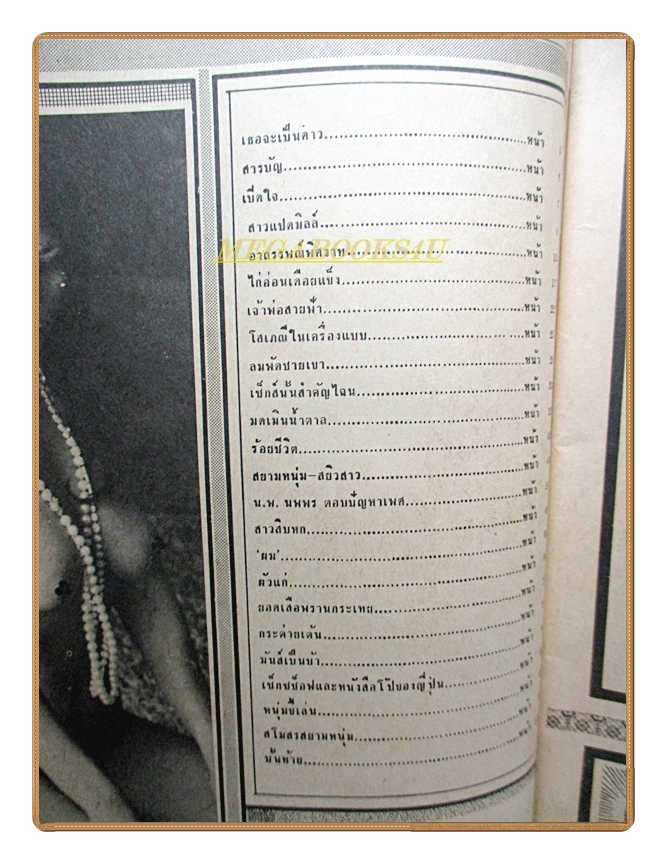 เธอจะเป็นดาว....................หน้า
สารบัญ....................หน้า
เปิดใจ....................หน้า
สาวแปดมิลล์....................หน้า
MEGABOOKS4U
อาถรรพณ์พิศวาท....................หน้า
ไก่อ่อนเดือยแข็ง....................หน้า
เจ้าพ่อสายฟ้า....................หน้า
โสเภณีในเครื่องแบบ....................หน้า
ลมพัดชายเขา....................หน้า
เซ็กส์นั้นสำคัญไฉน....................หน้า
มดเมินน้ำตาล....................หน้า
ร้อยชีวิต....................หน้า
สยามหนุ่ม–สยิวสาว....................หน้า
น.พ. นพพร ตอบปัญหาเพศ....................หน้า
สาวสิบหก....................หน้า
'ผม'....................หน้า
ผัวแก่....................หน้า
ยอดเสือพรานกระเทย....................หน้า
กระต่ายเต้น....................หน้า
มันส์เป็นบ้า....................หน้า
เซ็กซ์ช็อฟและหนังสือโป๊ของญี่ปุ่น....................หน้า
หนุ่มขี้เล่น....................หน้า
สโมสรสยามหนุ่ม....................หน้า
บั้นท้าย....................หน้า